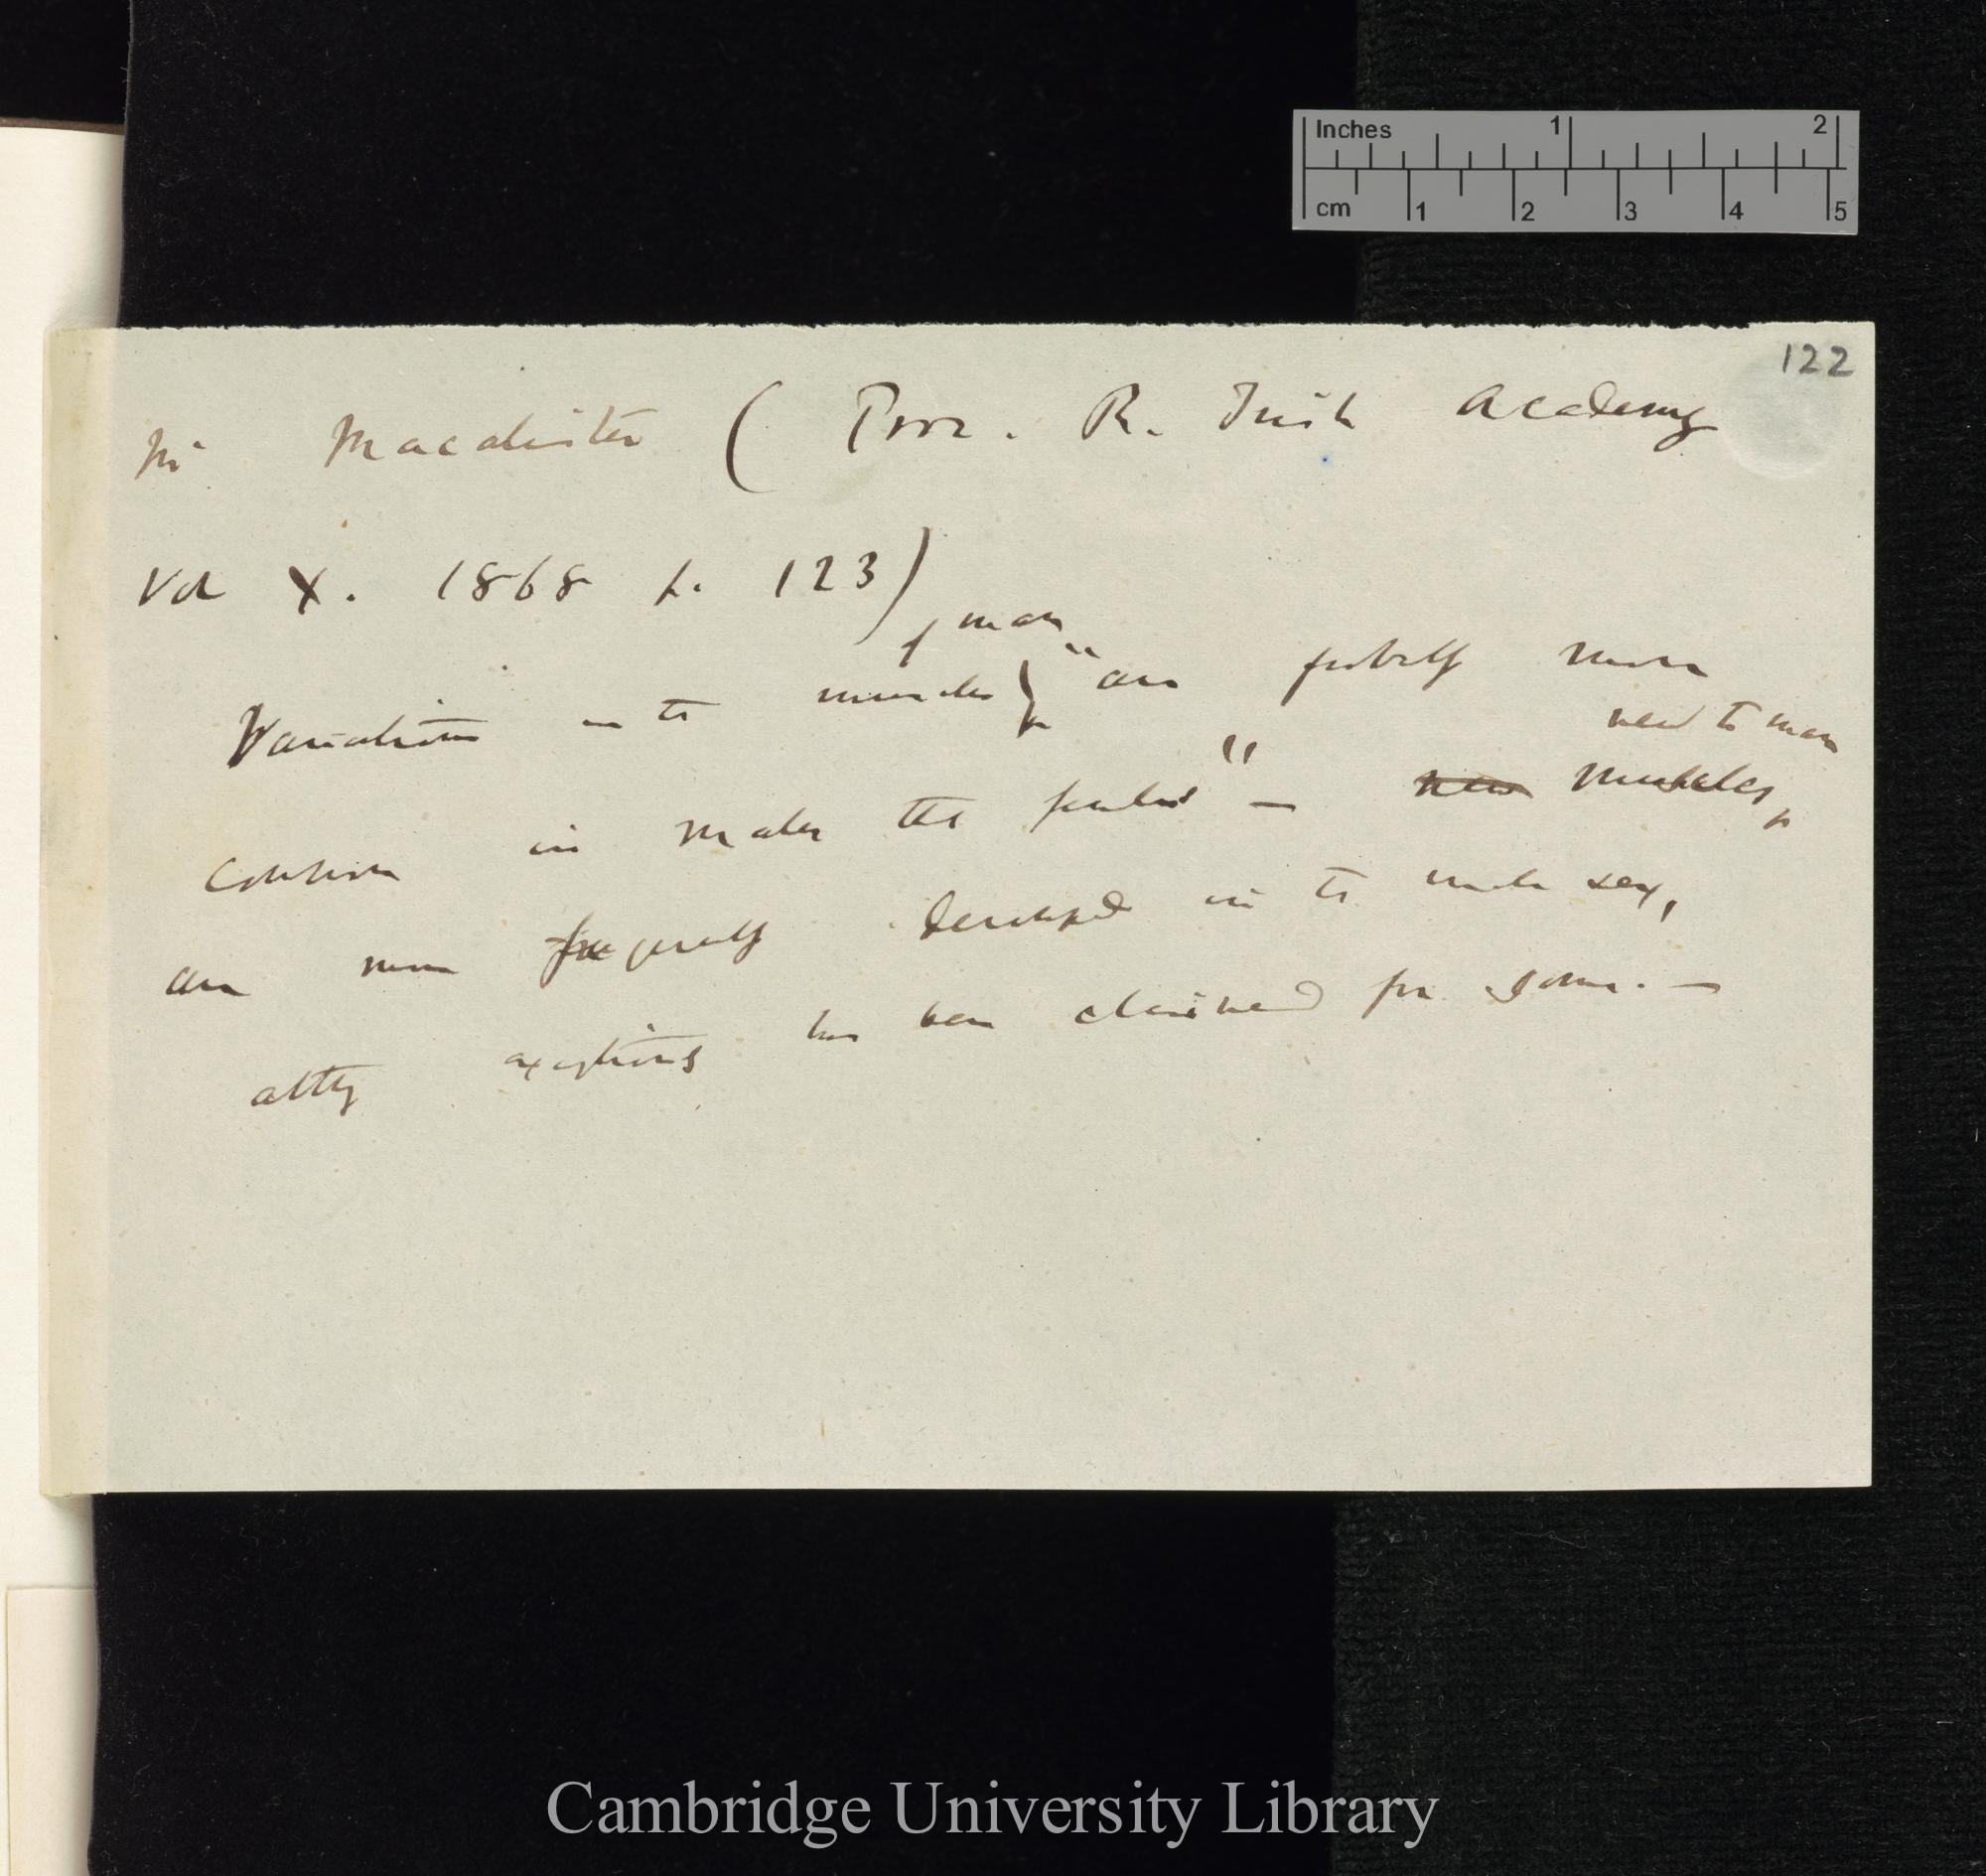 Inches 1 2
cm 1 2 3 4 5
122
Mr Macalister ( Proc. R. Irish Academy
Vol X. 1868 p. 123)
of man
Variations in the muscles "are probably more
new to man
common in males than females" — new Muscles,
are more fre generally developed in the male sex,
altho exceptions has been claimed for some. —
Cambridge University Library